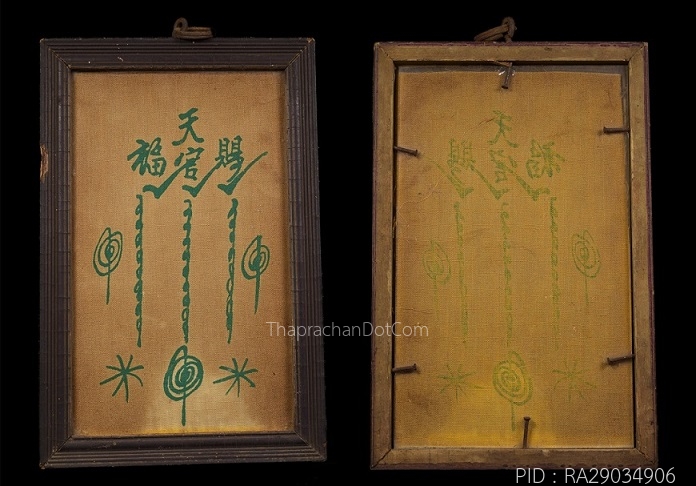 天
福官賜
ThaprachanDotCom
PID : RA29034906